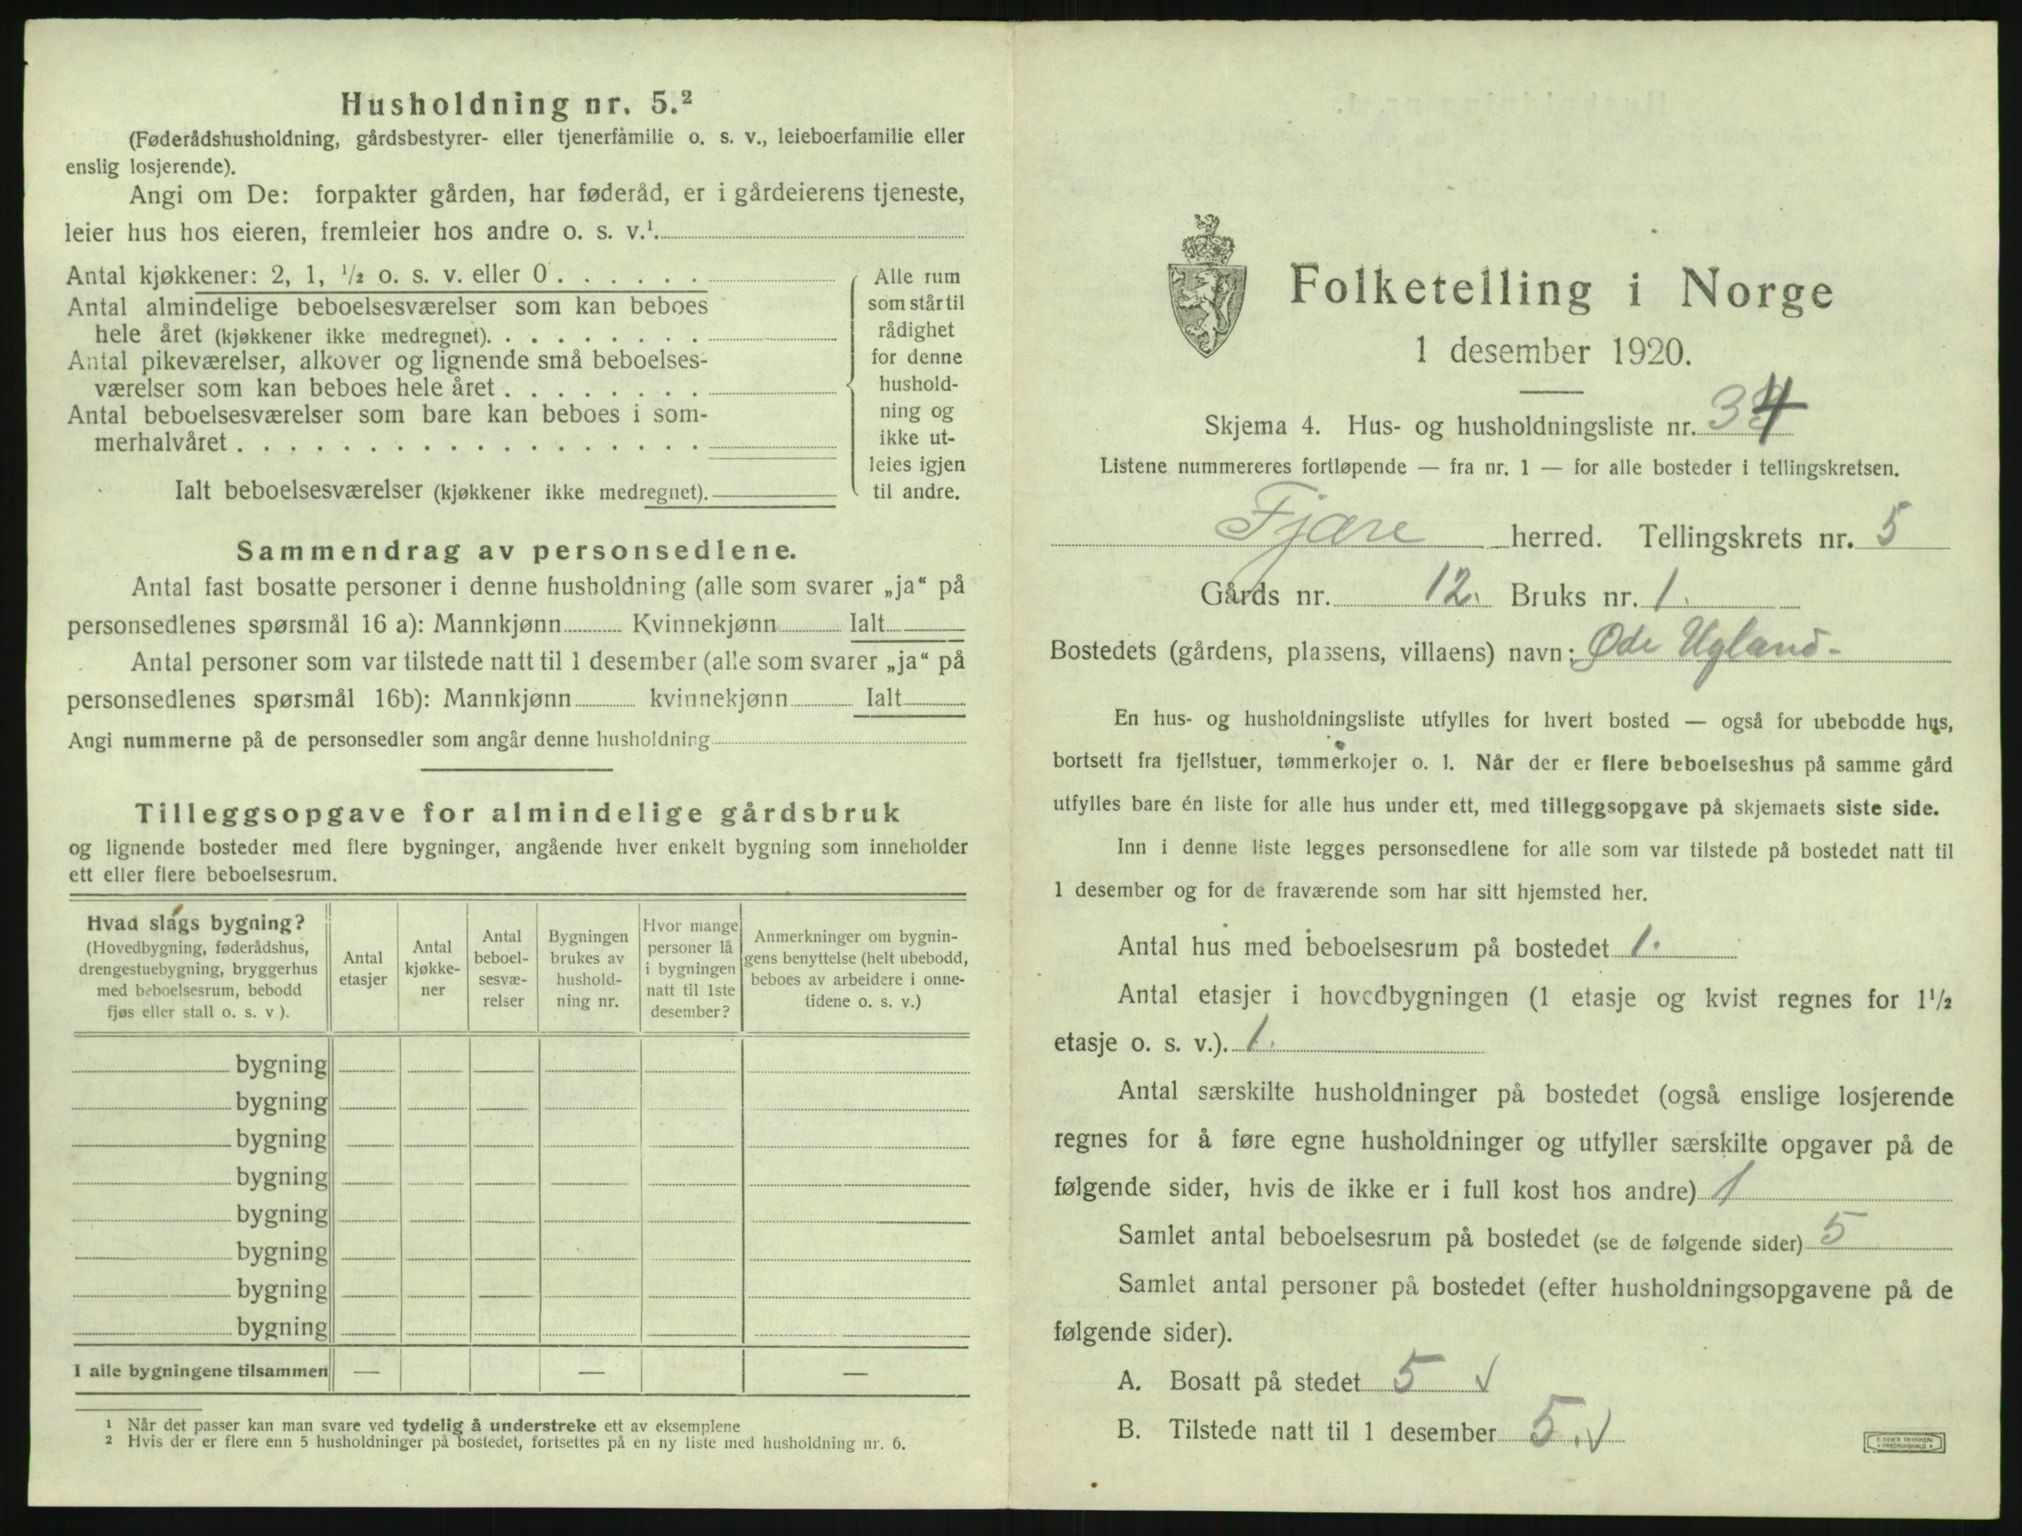 Husholdning nr. 5.²
(Føderådshusholdning, gårdsbestyrer- eller tjenerfamilie o. s. v., leieboerfamilie eller
enslig losjerende).
Angi om De: forpakter gården, har føderåd, er i gårdeierens tjeneste,
leier hus hos eieren, fremleier hos andre o. s. v.¹
Antal kjøkkener: 2, 1, ¹/₂ o. s. v. eller 0 . . . . . .
Antal almindelige beboelsesværelser som kan beboes
hele året (kjøkkener ikke medregnet). . . . . . . . .
Antal pikeværelser, alkover og lignende små beboelses-
værelser som kan beboes hele året . . . . . . . .
Antal beboelsesværelser som bare kan beboes i som-
merhalvåret . . . . . . . . . . . . . . . . . .
Ialt beboelsesværelser (kjøkkener ikke medregnet).
Alle rum
som står til
rådighet
for denne
hushold-
ning og
ikke ut-
leies igjen
til andre.
Sammendrag av personsedlene.
Antal fast bosatte personer i denne husholdning (alle som svarer „ja“ på
personsedlenes spørsmål 16 a): Mannkjønn Kvinnekjønn Ialt
Antal personer som var tilstede natt til 1 desember (alle som svarer „ja“ på
personsedlenes spørsmål 16b): Mannkjønn kvinnekjønn Ialt
Angi nummerne på de personsedler som angår denne husholdning
Tilleggsopgave for almindelige gårdsbruk
og lignende bosteder med flere bygninger, angående hver enkelt bygning som inneholder
ett eller flere beboelsesrum.
Hvad slags bygning?
(Hovedbygning, føderådshus,
drengestuebygning, bryggerhus
med beboelsesrum, bebodd
fjøs eller stall o. s. v.).
Antal
etasjer
Antal
kjøkke-
ner
Antal
beboel-
sesvæ-
relser
Bygningen
brukes av
hushold-
ning nr.
Hvor mange
personer lå
i bygningen
natt til 1ste
desember?
Anmerkninger om bygnin-
gens benyttelse (helt ubebodd,
beboes av arbeidere i onne-
tidene o. s. v.)
bygning
bygning
bygning
bygning
bygning
bygning
bygning
bygning
I alle bygningene tilsammen — — —
¹ Når det passer kan man svare ved tydelig å understreke ett av eksemplene
² Hvis der er flere enn 5 husholdninger på bostedet, fortsettes på en ny liste med husholdning nr. 6.
Folketelling i Norge
1 desember 1920.
Skjema 4. Hus- og husholdningsliste nr. 34
Listene nummereres fortløpende — fra nr. 1 — for alle bosteder i tellingskretsen.
Fjære herred. Tellingskrets nr. 5
Gårds nr. 12. Bruks nr. 1.
Bostedets (gårdens, plassens, villaens) navn: Øde Ugland-
En hus- og husholdningsliste utfylles for hvert bosted — også for ubebodde hus,
bortsett fra fjellstuer, tømmerkojer o. l. Når der er flere beboelseshus på samme gård
utfylles bare én liste for alle hus under ett, med tilleggsopgave på skjemaets siste side.
Inn i denne liste legges personsedlene for alle som var tilstede på bostedet natt til
1 desember og for de fraværende som har sitt hjemsted her.
Antal hus med beboelsesrum på bostedet 1.
Antal etasjer i hovedbygningen (1 etasje og kvist regnes for 1¹/₂
etasje o. s. v.). 1.
Antal særskilte husholdninger på bostedet (også enslige losjerende
regnes for å føre egne husholdninger og utfyller særskilte opgaver på de
følgende sider, hvis de ikke er i full kost hos andre) 1
Samlet antal beboelsesrum på bostedet (se de følgende sider) 5
Samlet antal personer på bostedet (efter husholdningsopgavene på de
følgende sider).
A. Bosatt på stedet 5 √
B. Tilstede natt til 1 desember 5. √